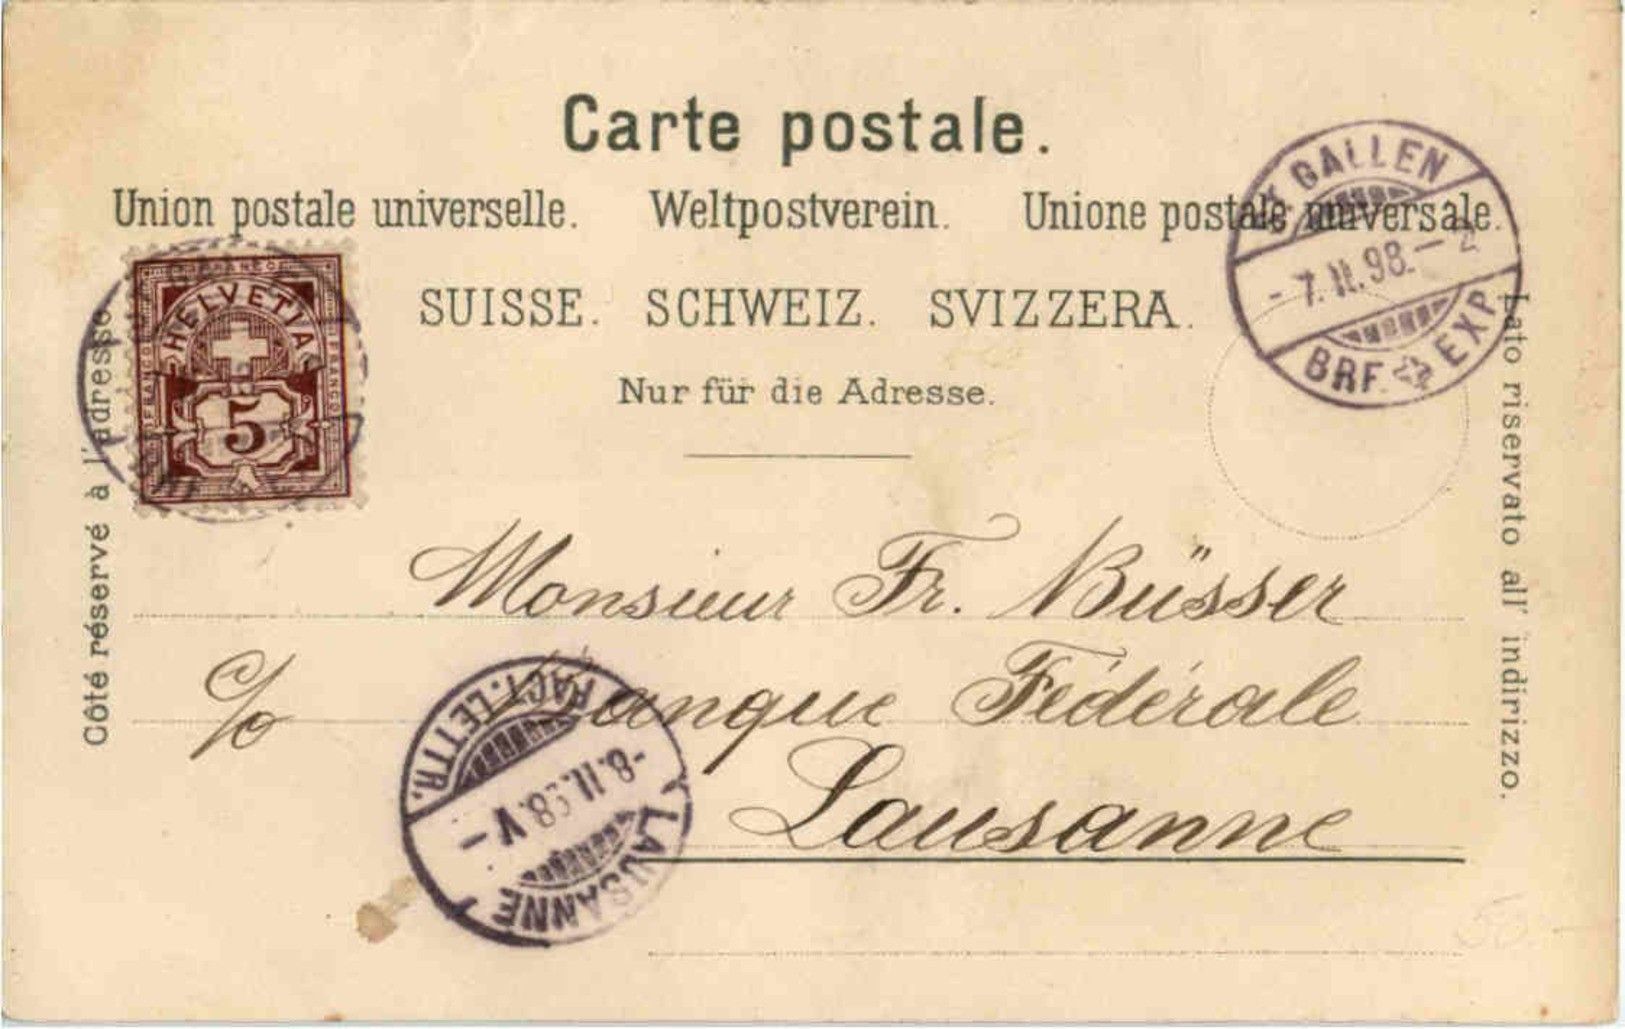 Carte postale.
Union postale universelle. Weltpostverein. Unione postale universale.
SUISSE. SCHWEIZ. SVIZZERA.
Nur für die Adresse.
Côté réservé à l'adresse.
Lato riservato all' indirizzo.
FRANCO
HELVETIA
FRANCO
FRANCO
5
GALLEN
- 7. II. 98. - 2
BRF. EXP.
Monsieur Fr. Büsser
c/o Banque Fédérale
Lausanne
LAUSANNE
-8. II. 98. V -
FACT. LETTR.
50.